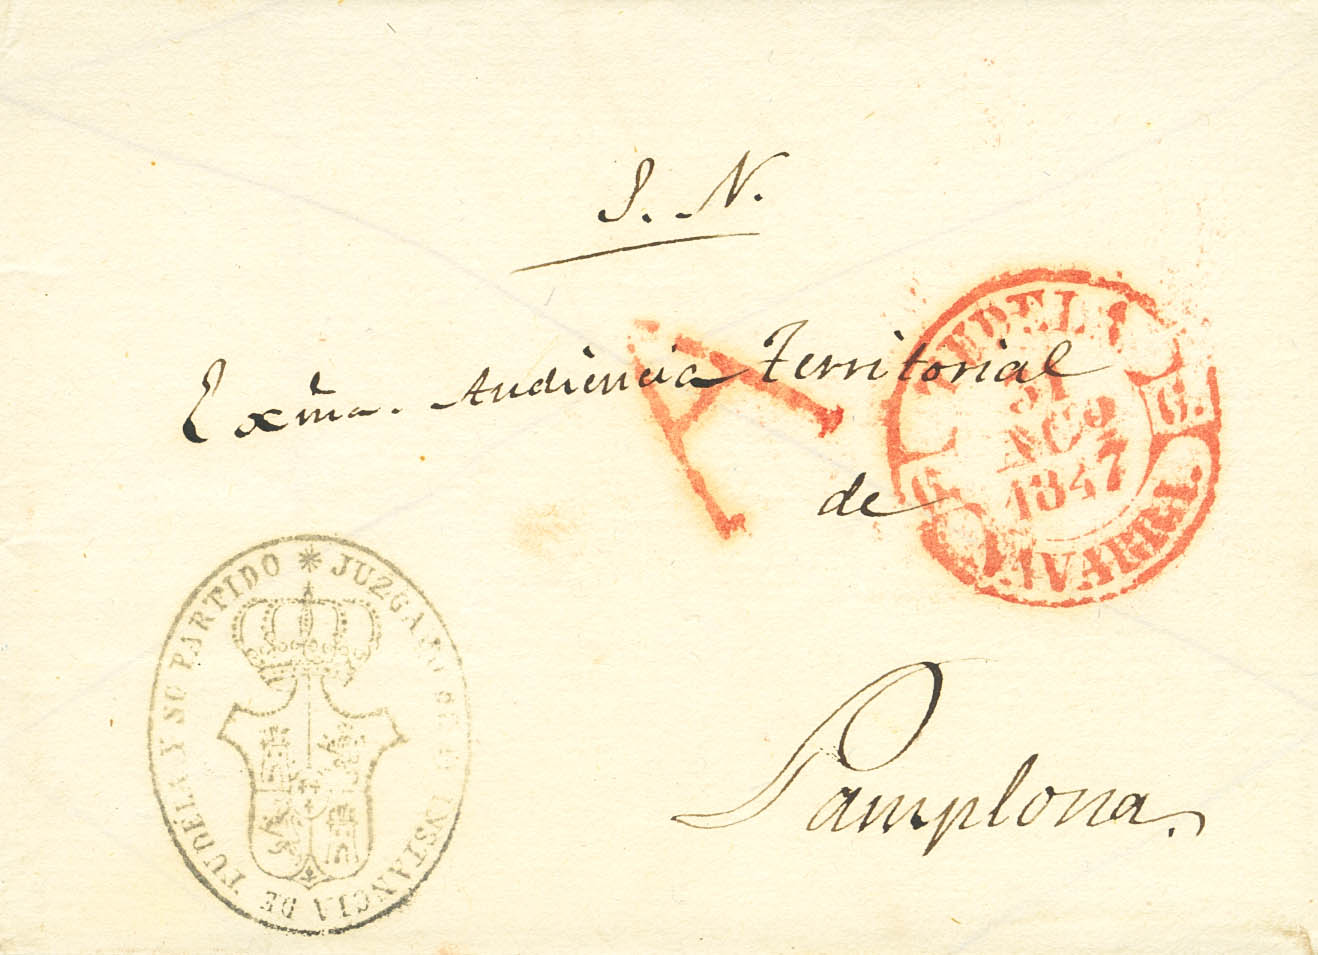 S. N.
Exma. Audiencia Territorial
de
Pamplona.
A
TUDELA
G. G.
31
AGO
1847
NAVARRA.
* JUZGADO DE 1ª INSTANCIA DE TUDELA Y SU PARTIDO